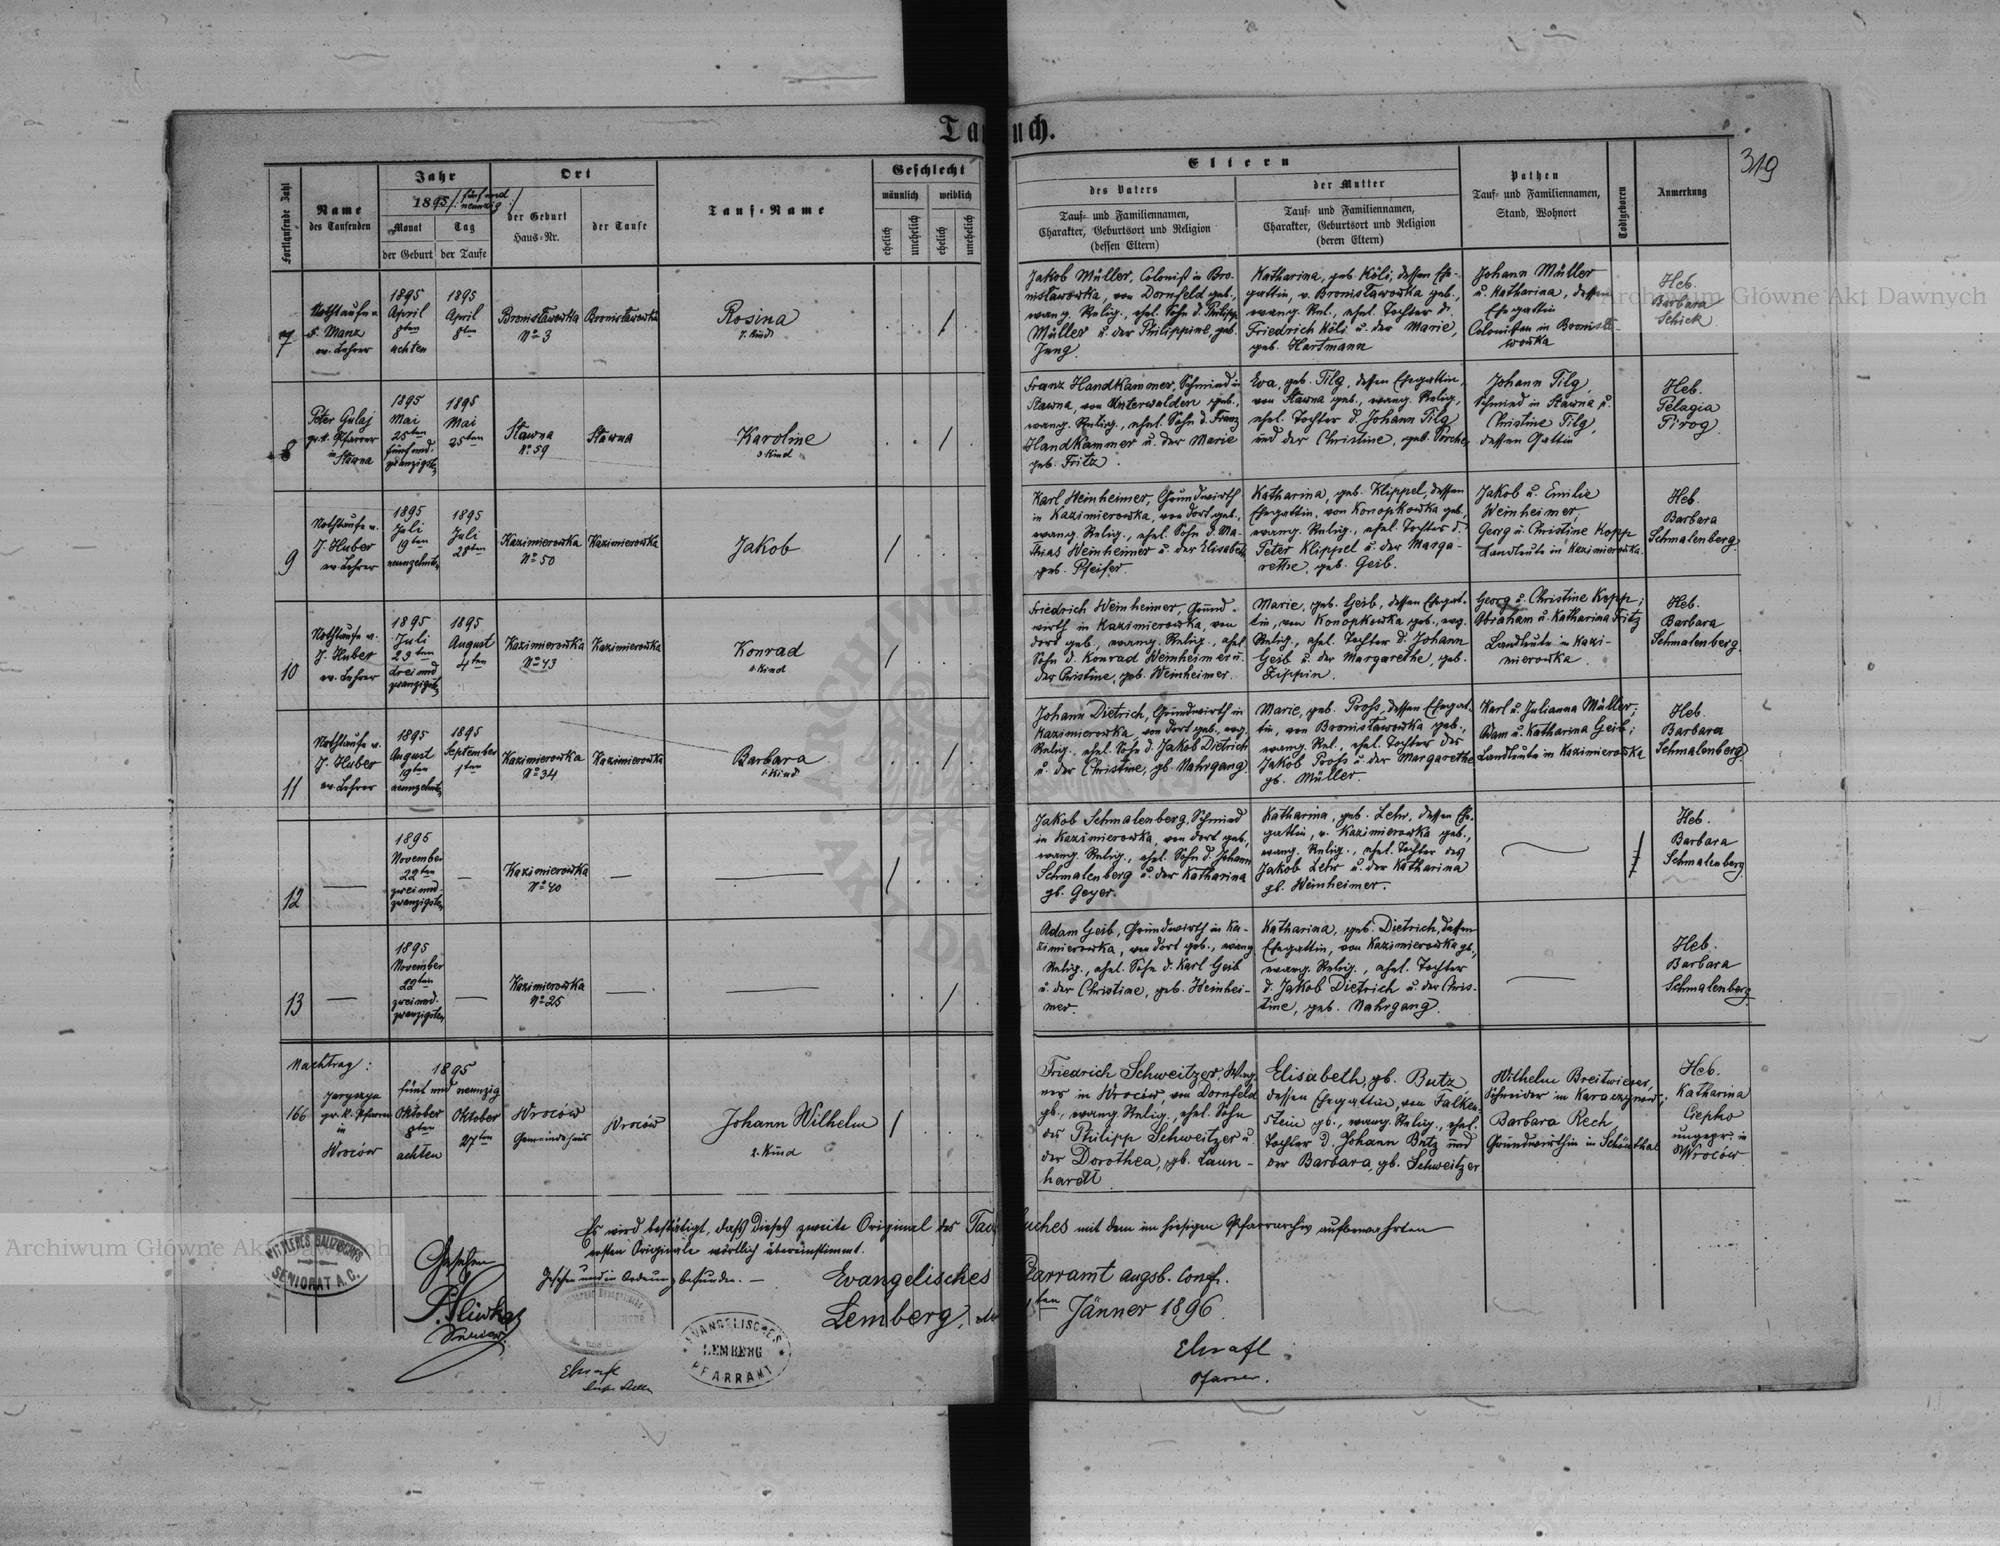 Taufbuch.
319
Fortlaufende Zahl
Name
des Taufenden
Jahr
1895/: fünf und
neunzig :/
Monat
Tag
der Geburt
der Taufe
Ort
der Geburt
Haus-Nr.
der Taufe
Tauf-Name
Geschlecht
männlich
weiblich
ehelich
unehelich
ehelich
unehelich
Eltern
des Vaters
Tauf- und Familiennamen,
Charakter, Geburtsort und Religion
(dessen Eltern)
der Mutter
Tauf- und Familiennamen,
Charakter, Geburtsort und Religion
(deren Eltern)
Pathen
Tauf- und Familiennamen,
Stand, Wohnort
Todtgeboren
Anmerkung
7
Nothtaufe v.
Manz
ev. Lehrer
1895
April
8ten
achten
1895
April
8ten
Bronisławowka
No 3
Bronisławowka
Rosina
7. Kind
/
Jakob Müller, Colonist in Bro-
nisławowka, von Dornfeld geb.,
evang. Relig., ehel. Sohn d. Philipp
Müller u. der Philippine, geb.
Jung.
Katharina, geb. Köli, dessen Ehe-
gattin, v. Bronisławowka geb.,
evang. Rel., ehel. Tochter d.
Friedrich Köli u. der Marie,
geb. Hartmann
Johann Müller
u. Katharina, dessen
Ehegattin
Colonisten in Bronisła-
wowka
Heb.
Barbara
Schick
8
Peter Gulaj
gr. k. Pfarrer
in Sławna
1895
Mai
25ten
fünf und
zwanzigsten
1895
Mai
25ten
Sławna
No 59
Sławna
Karoline
3 Kind
/
Franz Handkammer, Schmied in
Sławna, von Unterwalden geb.,
evang. Relig., ehel. Sohn d. Franz
Handkammer u. der Marie
geb. Fritz.
Eva, geb. Tilg, dessen Ehegattin,
von Sławna geb., evang. Relig.,
ehel. Tochter d. Johann Tilg
und der Christine, geb. Porche
Johann Tilg
Schmied in Sławna u.
Christine Tilg,
dessen Gattin
Heb.
Pelagia
Pirog
9
Nothtaufe v.
J. Huber
ev. Lehrer
1895
Juli
19ten
neunzehnten
1895
Juli
28ten
Kazimierowka
No 50
Kazimierowka
Jakob
/
Karl Weinheimer, Grundwirth
in Kazimierowka, von dort geb.,
evang. Relig., ehel. Sohn d. Ma-
thias Weinheimer u. der Elisabeth
geb. Pfeifer.
Katharina, geb. Klippel, dessen
Ehegattin, von Konopkowka geb.,
evang. Relig., ehel. Tochter d.
Peter Klippel u. der Marga-
rethe, geb. Geib.
Jakob u. Emilie
Weinheimer,
Georg u. Christine Kopp
Landleute in Kazimierowka.
Heb.
Barbara
Schmalenberg.
10
Nothtaufe v.
J. Huber
ev. Lehrer
1895
Juli
23ten
drei und
zwanzigsten
1895
August
4ten
Kazimierowka
No 43
Kazimierowka
Konrad
Kind
/
Friedrich Weinheimer, Grund-
wirth in Kazimierowka, von
dort geb., evang. Relig., ehel.
Sohn d. Konrad Weinheimer u.
der Christine, geb. Weinheimer.
Marie, geb. Geib, dessen Ehegat-
tin, von Konopkowka geb., evg.
Relig., ehel. Tochter d. Johann
Geib u. der Margarethe, geb.
Zippin.
Georg u. Christine Kopp;
Abraham u. Katharina Fritz
Landleute in Kazi-
mierowka.
Heb.
Barbara
Schmalenberg.
11
Nothtaufe v.
J. Huber
ev. Lehrer
1895
August
19ten
neunzehnten
1895
September
1ten
Kazimierowka
No 34
Kazimierowka
Barbara
1. Kind
/
Johann Dietrich, Grundwirth in
Kazimierowka, von dort geb., evg.
Relig., ehel. Sohn d. Jakob Dietrich
u. der Christine, gb. Nahrgang.
Marie, geb. Profs, dessen Ehegat-
tin, von Bronisławowka geb.,
evang. Rel., ehel. Tochter des
Jakob Profs u. der Margarethe
gb. Müller.
Karl u. Julianna Müller;
Adam u. Katharina Geib;
Landleute in Kazimierowka
Heb.
Barbara
Schmalenberg
12
1895
November
22ten
zwei und
zwanzigsten
Kazimierowka
No 40
/
Jakob Schmalenberg, Schmied
in Kazimierowka, von dort geb.,
evang. Relig., ehel. Sohn d. Johann
Schmalenberg u. der Katharina
gb. Geyer.
Katharina, geb. Lehr, dessen Ehe-
gattin, v. Kazimierowka geb.,
evang. Relig., ehel. Tochter des
Jakob Lehr u. der Katharina
gb. Weinheimer.
Heb.
Barbara
Schmalenberg
13
1895
November
22ten
zwei und
zwanzigsten
Kazimierowka
No 25
/
Adam Geib, Grundwirth in Ka-
zimierowka, von dort geb., evang.
Relig., ehel. Sohn d. Karl Geib
u. der Christine, geb. Weinhei-
mer.
Katharina, geb. Dietrich, dessen
Ehegattin, von Kazimierowka gb.,
evang. Relig., ehel. Tochter
d. Jakob Dietrich u. der Chris-
tine, geb. Nahrgang.
Heb.
Barbara
Schmalenberg
Nachtrag:
166
gr. k. Pfarrer
in
Wrocόw
1895
fünf und neunzig
Oktober
8ten
achten
Oktober
27ten
Wrocόw
Gemeindehaus
Wrocόw
Johann Wilhelm
2. Kind
/
Friedrich Schweitzer, Wag-
ner in Wrocόw von Dornfeld
gb., evang. Relig., ehel. Sohn
des Philipp Schweitzer u.
der Dorothea, gb. Laun-
hardt.
Elisabeth, gb. Butz
dessen Ehegattin, von Falken-
stein gb., evang. Relig., ehel.
Tochter d. Johann Butz und
der Barbara, gb. Schweitzer
Wilhelm Breitwieser,
Schneider in Karaczynow;
Barbara Rech,
Grundwirthin in Schönthal
Heb.
Katharina
Ciepko
ungepr. in
Wrocόw
Es wird bestätigt, daß dieses zweite Original des Taufbuches mit dem im hiesigen Pfarrarchiv aufbewahrten
ersten Originale wörtlich übereinstimmt.
Gesehen und in Ordnung befunden. —
Evangelisches Pfarramt Augsb. Conf.
Lemberg, ten Jänner 1896.
Gesehen
Senior
Pfarrer.
MITTLERES GALIZISCHES
SENIORAT A.C.
EVANGELISCHES
LEMBERG
PFARRAMT
Archiwum Główne Akt Dawnych
Archiwum Główne Akt Dawnych